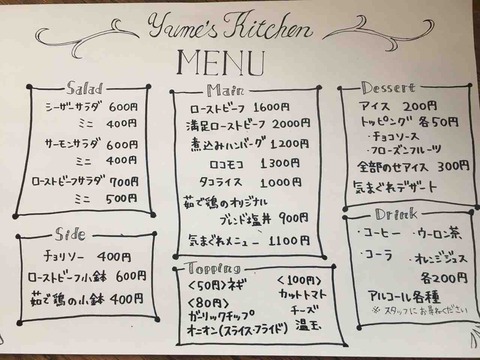 Yume's Kitchen
MENU
Salad
シーザーサラダ 600円
ミニ 400円
サーモンサラダ 600円
ミニ 400円
ローストビーフサラダ 700円
ミニ 500円
Side
チョリソー 400円
ローストビーフ小鉢 600円
茹で鶏の小鉢 400円
Main
ローストビーフ 1600円
満足ローストビーフ 2000円
煮込みハンバーグ 1200円
ロコモコ 1300円
タコライス 1000円
茹で鶏のオリジナル
ブレンド塩丼 900円
気まぐれメニュー 1100円
Topping
<50円>ネギ
<80円>
ガーリックチップ
オニオン(スライス・フライド)
<100円>
カットトマト
チーズ
温玉
Dessert
アイス 200円
トッピング 各50円
・チョコソース
・フローズンフルーツ
全部のせアイス 300円
気まぐれデザート
Drink
・コーヒー ・ウーロン茶
・コーラ ・オレンジジュス
各200円
アルコール各種
※スタッフにお尋ねください